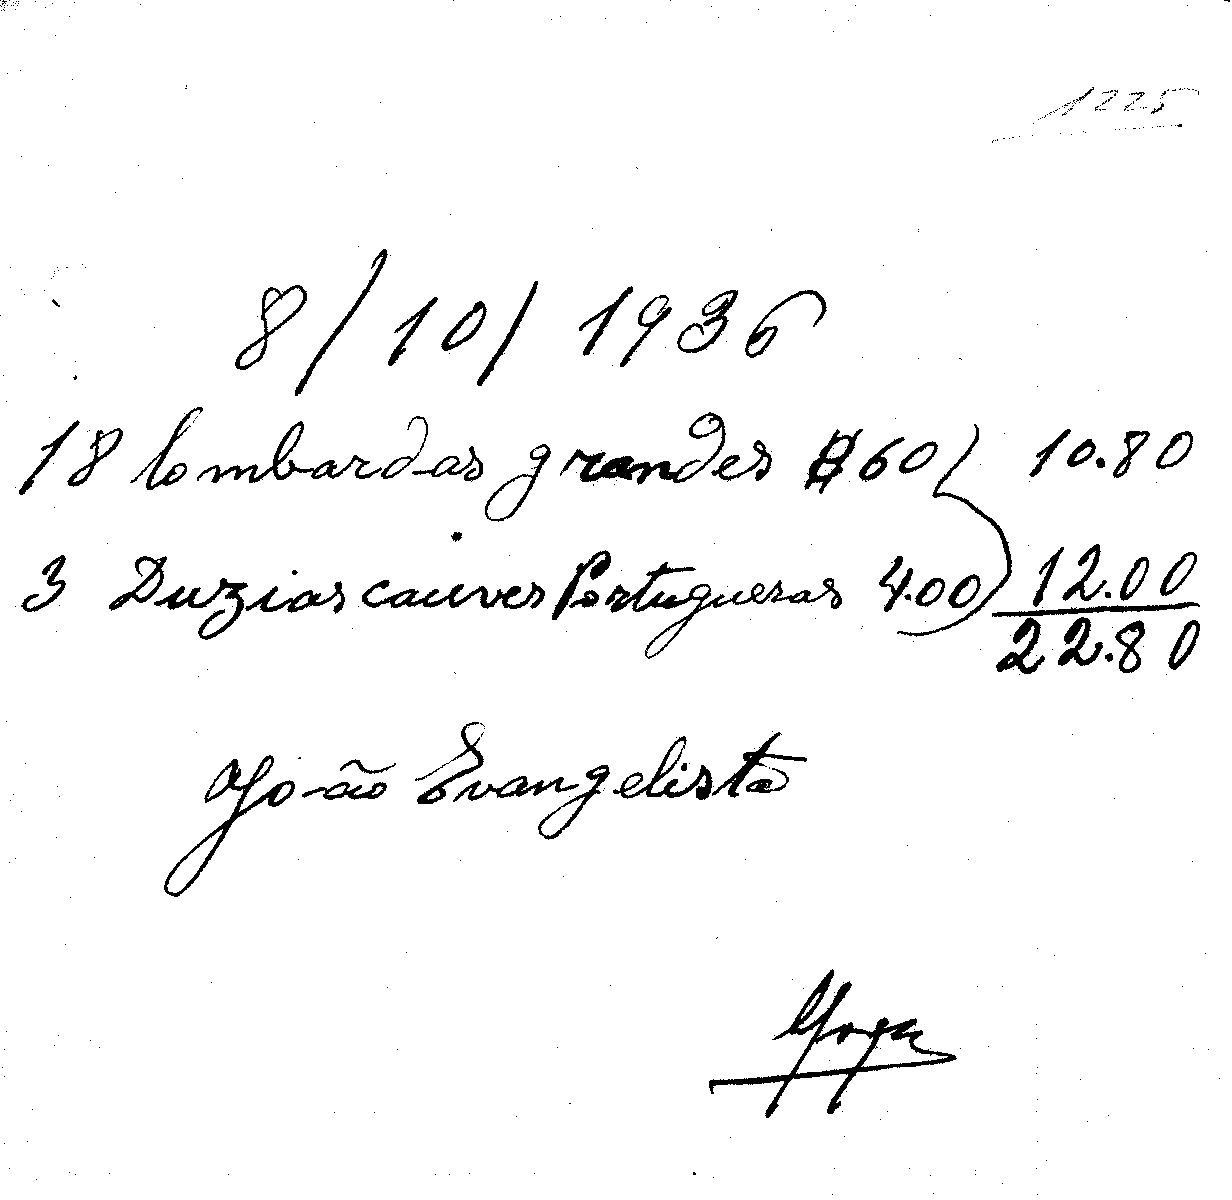 1225
8/10/1936
18 lombardas grandes $60 10.80
3 Duzias cauves Portuguesas 4.00 12.00
22.80
João Evangelista